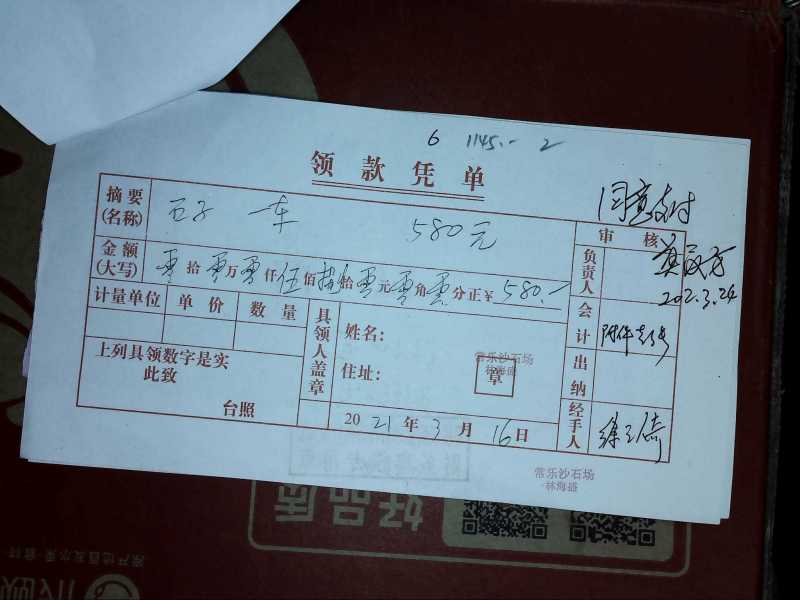 6 1145.- 2
领款凭单
同意支付
摘要(名称) 石子 一车 580元
审核
金额(大写) 零拾零万零仟伍佰捌拾零元零角零分正¥580.-
负责人
202.3.24
计量单位 单价 数量
具领人盖章
姓名:
会计
住址:
常乐沙石场
林海盛
章
上列具领数字是实
此致
台照
出纳
2021年3月16日
经手人
常乐沙石场
林海盛
好品质